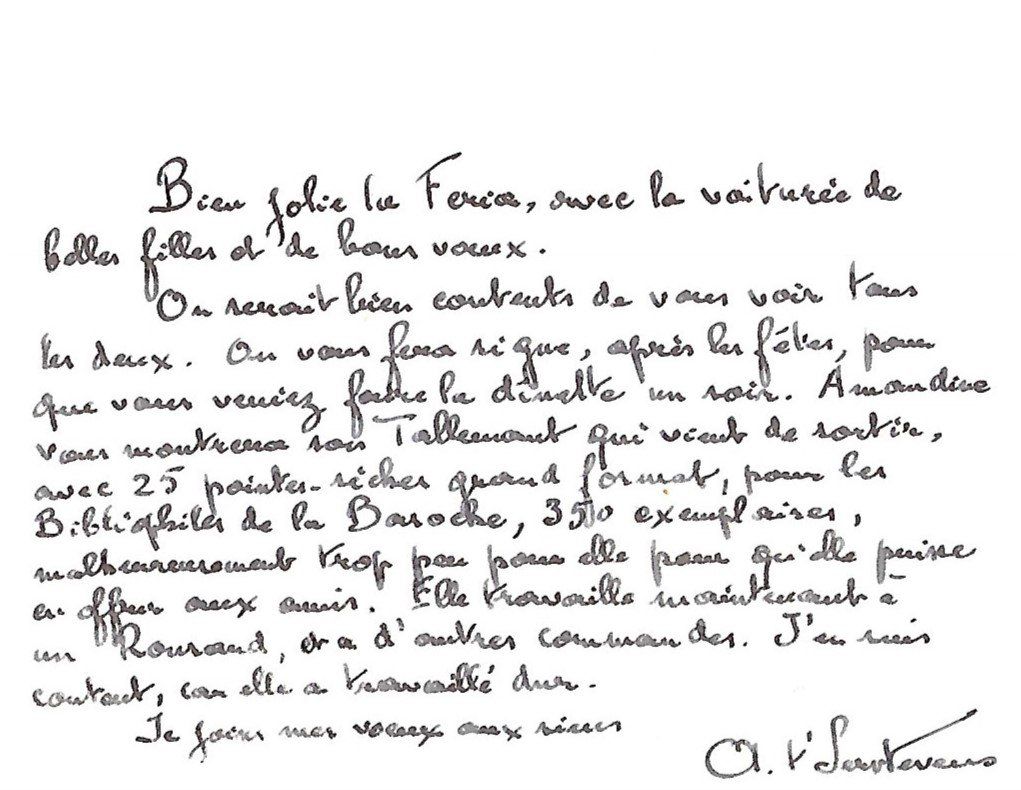 Bien jolie la Feria, avec la voiturée de
belles filles et de bons vœux.
On serait bien contents de vous voir tous
les deux. On vous fera signe, après les fêtes, pour
que vous veniez faire la dînette un soir. Amandine
vous montrera son Tallemant qui vient de sortir,
avec 25 pointes-sèches grand format, pour les
Bibliophiles de la Basoche, 350 exemplaires,
malheureusement trop peu pour elle pour qu'elle puisse
en offrir aux amis. Elle travaille maintenant à
un Ronsard, et a d'autres commandes. J'en suis
content, car elle a travaillé dur.
Je joins mes vœux aux siens
A. t'Serstevens